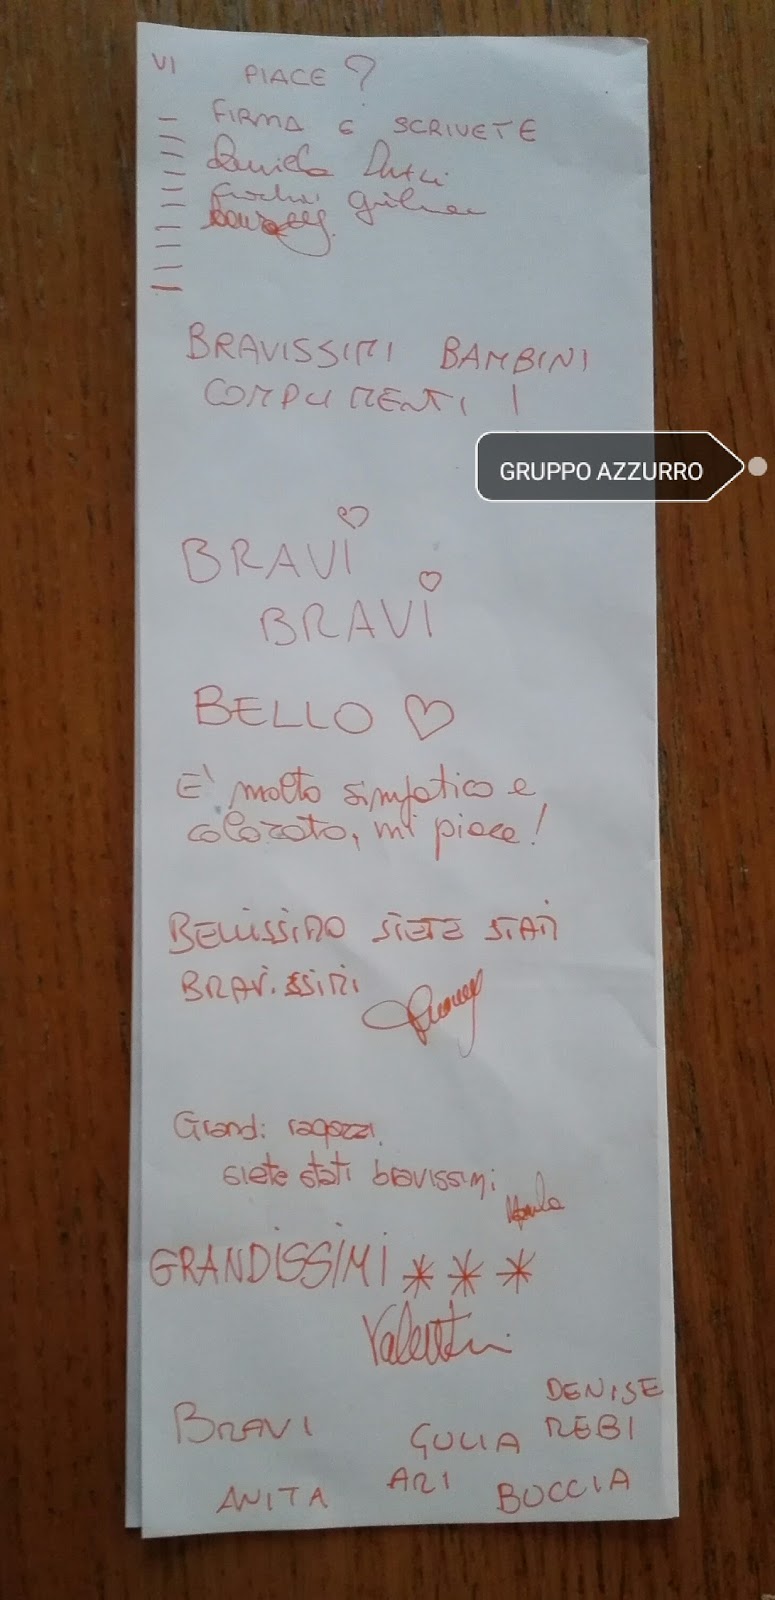 VI PIACE ?
FIRMA E SCRIVETE
Daniela
BRAVISSIMI BAMBINI
COMPLIMENTI !
GRUPPO AZZURRO
BRAVI
BRAVI
BELLO
E' molto simpatico e
colorato, mi piace!
BELLISSIMO SIETE STATI
BRAVISSIMI
Grandi ragazzi
siete stati bravissimi
Paola
GRANDISSIMI ***
BRAVI
DENISE
GULIA REBI
ANITA ARI BOCCIA